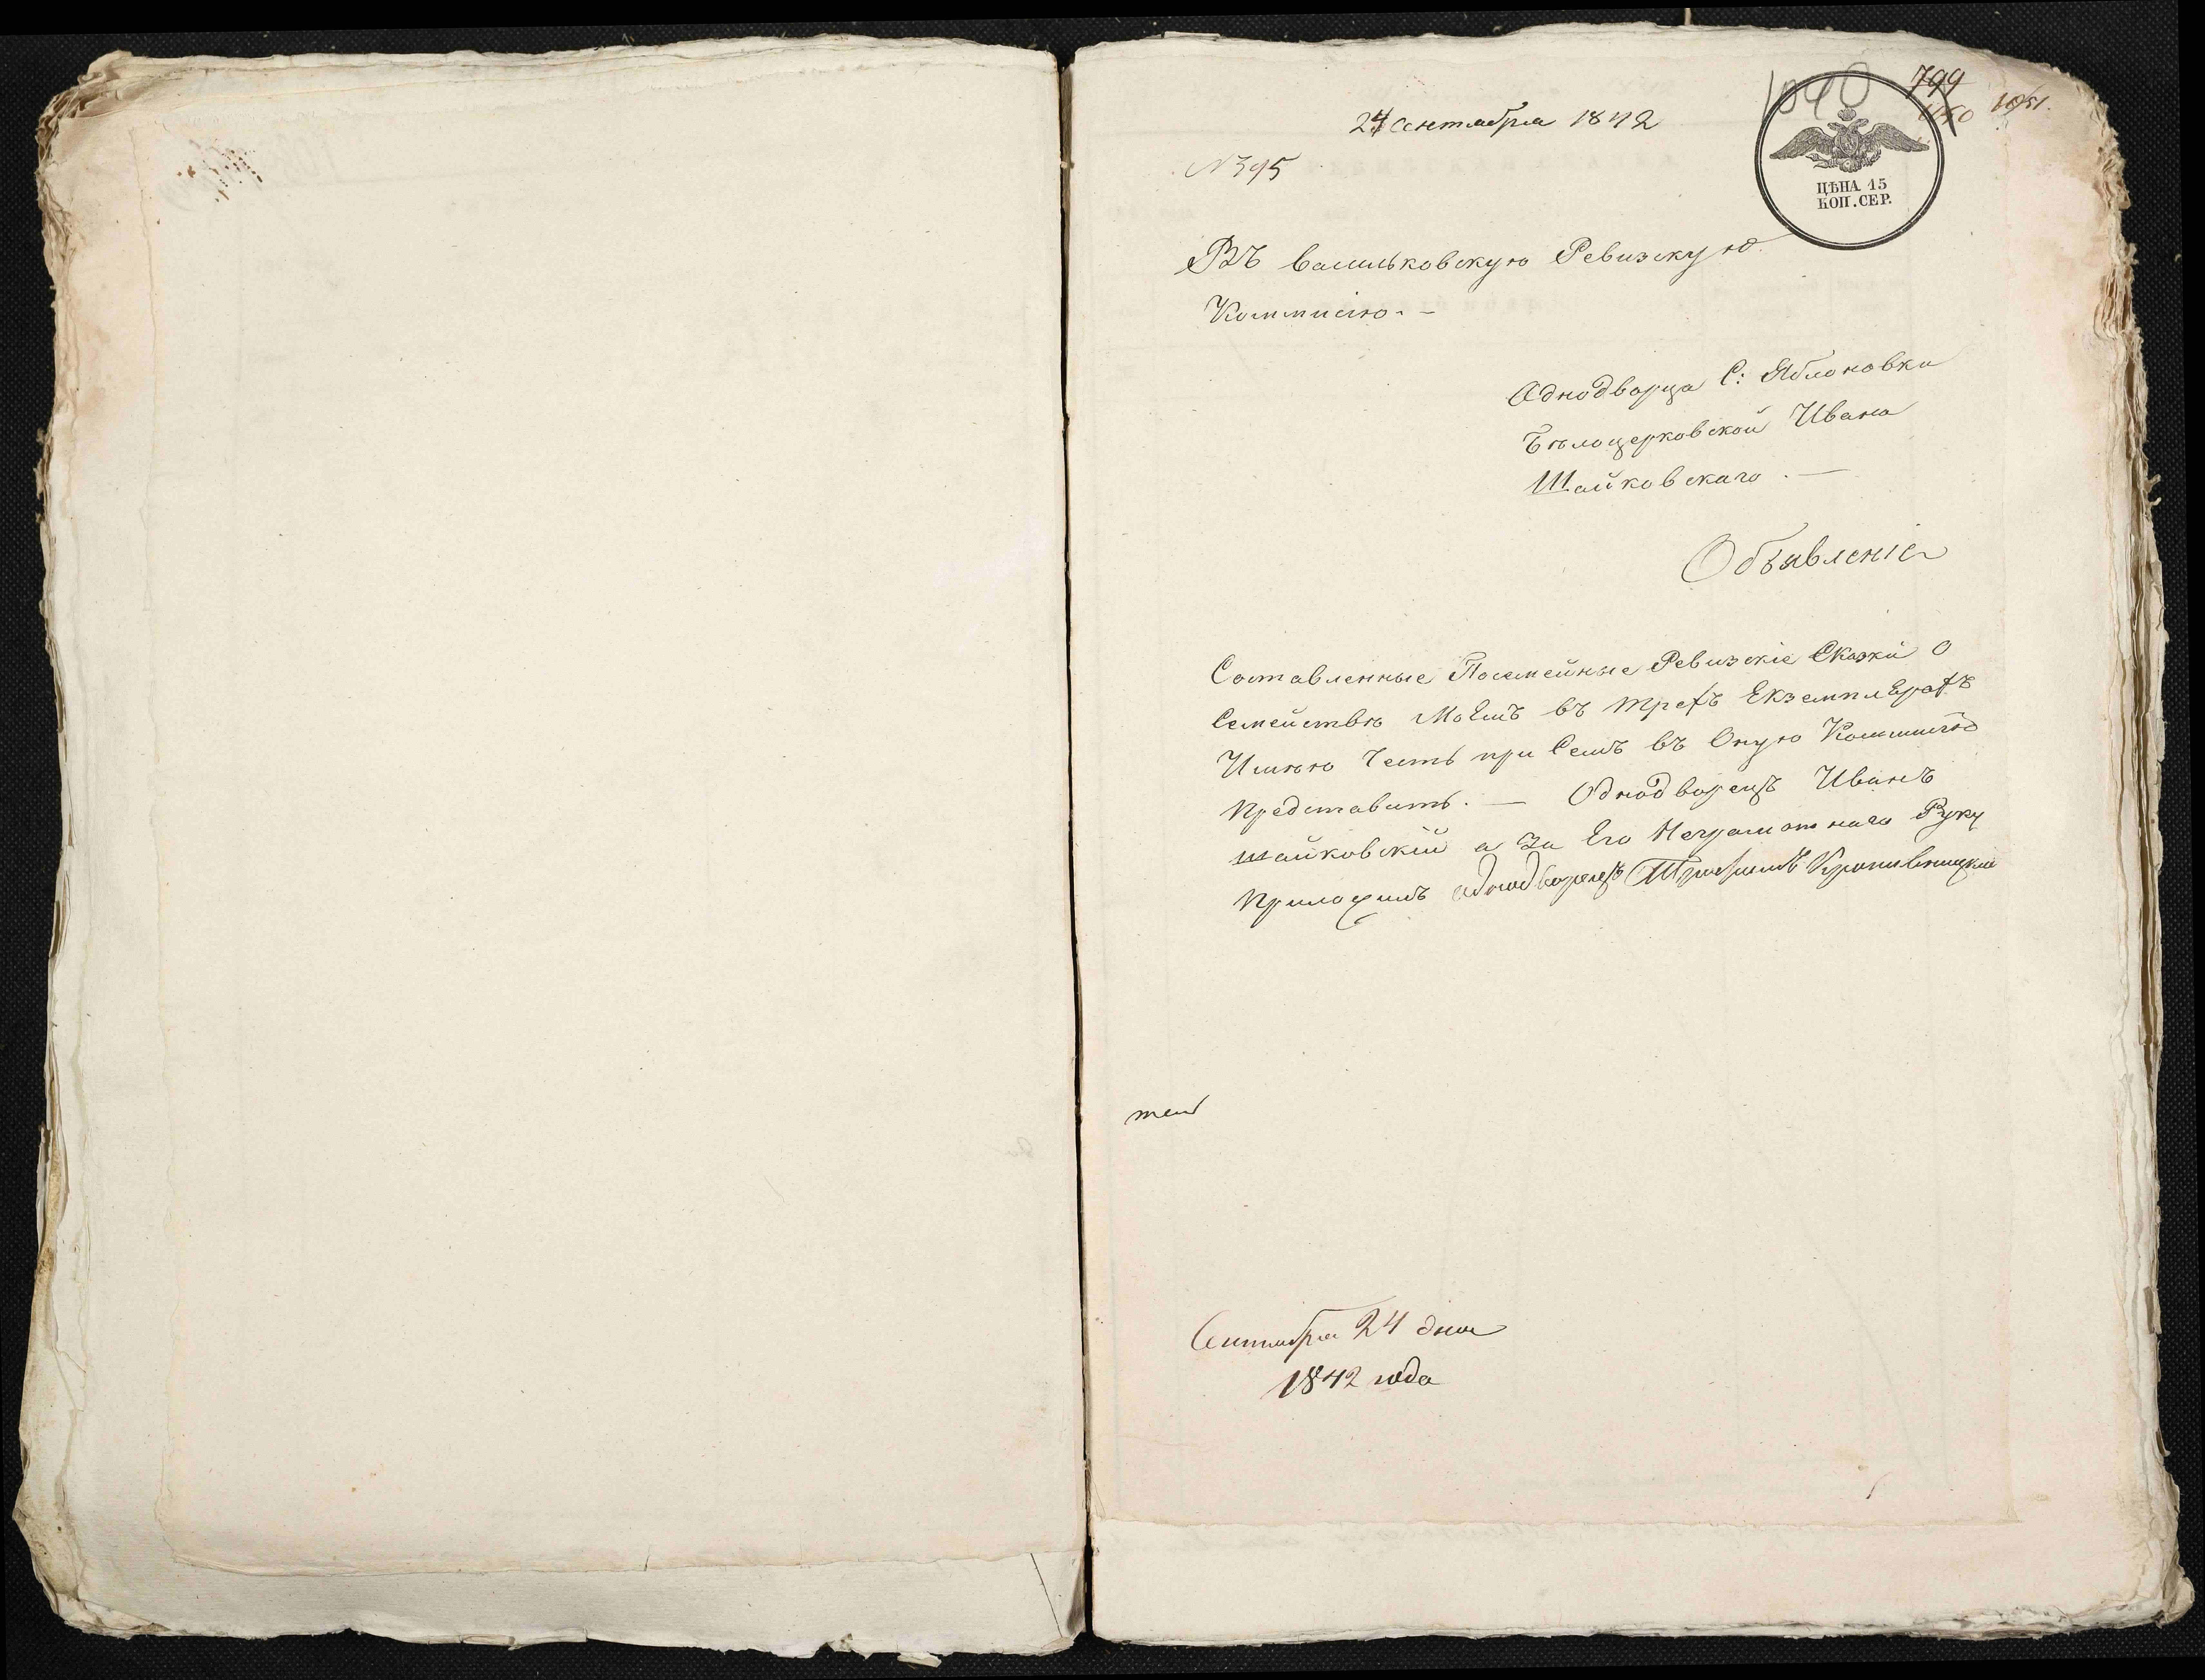 1040
799
1051.
24 Сентября 1842
№ 395
ЦѢНА 15
КОП. СЕР.
Въ Васильковскую Ревизскую
Коммисію. —
Однодворца С: Яблоновки
Бѣлоцерковской Ивана
Шайковскаго. —
Объявленіе
Составленные Посемейные Ревизскіе Сказки О
Семействѣ Моемъ въ трехъ Екземплерахъ
Имѣю Честь при Семъ въ Оную Коммисію
Представить. — Однодворецъ Иванъ
Шайковскій а За Его Неграмотнаго Руку
Приложилъ однодворецъ Трофимъ Кропивницкій
Сентября 24 дня
1842 года